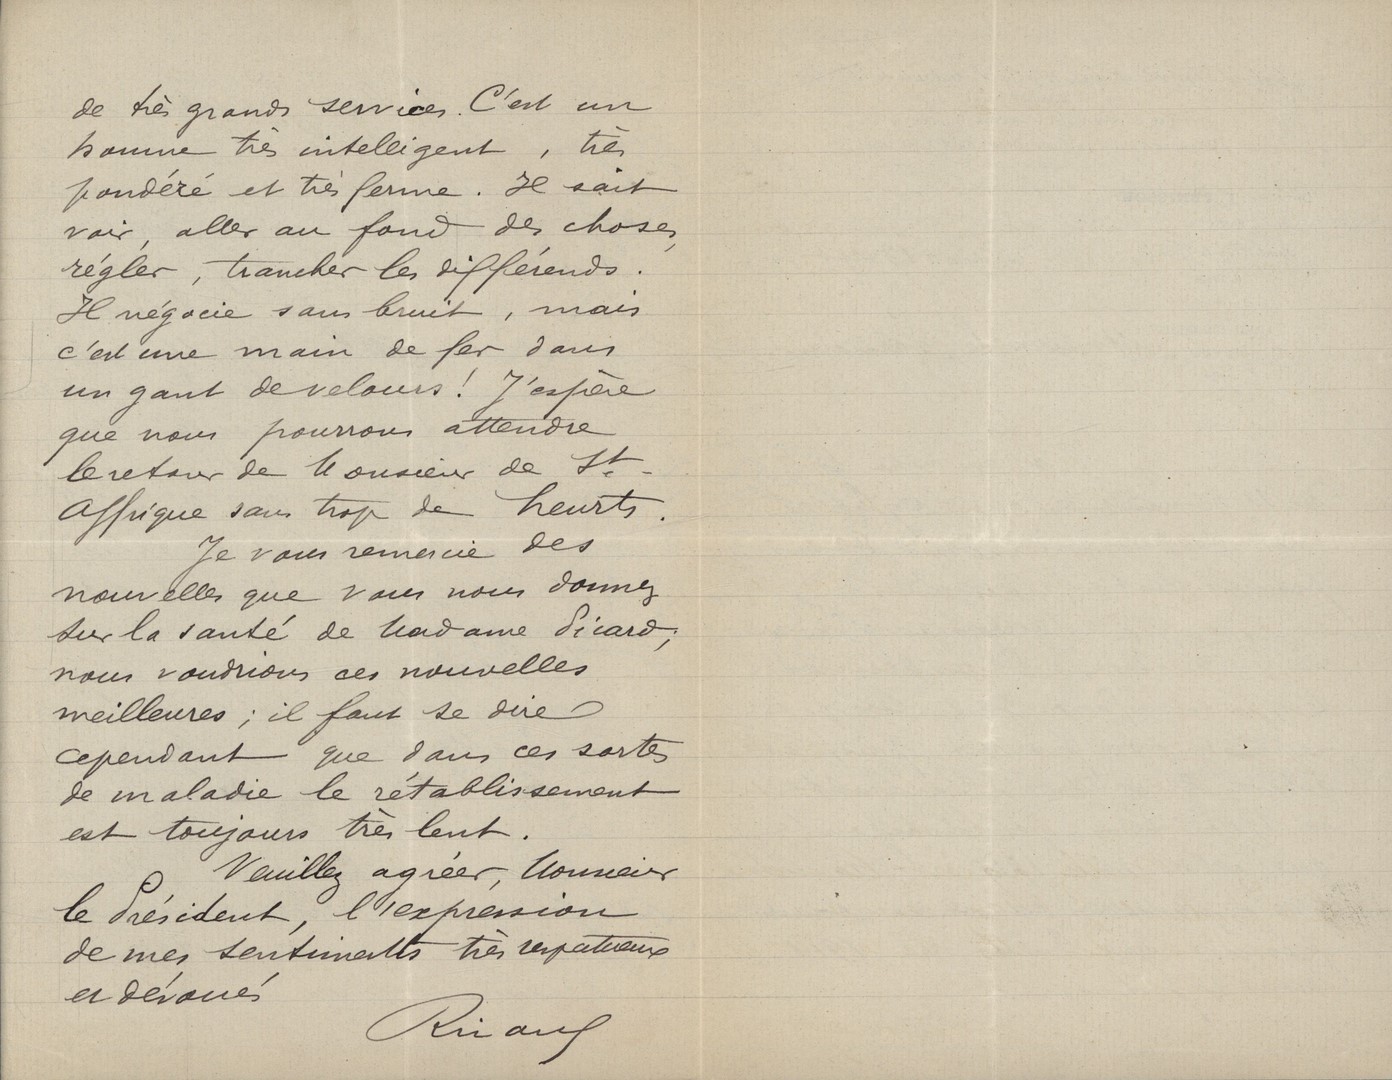 de très grands services. C'est un
homme très intelligent, très
pondéré et très ferme. Il sait
voir, aller au fond des choses,
régler, trancher les différends.
Il négocie sans bruit, mais
c'est une main de fer dans
un gant de velours! J'espère
que nous pourrons attendre
le retour de Monsieur de St-
Affrique sans trop de heurts.
Je vous remercie des
nouvelles que vous nous donnez
sur la santé de Madame Picard;
nous voudrions ces nouvelles
meilleures; il faut se dire
cependant que dans ces sortes
de maladie le rétablissement
est toujours très lent.
Veuillez agréer, Monsieur
le Président, l'expression
de mes sentiments très respectueux
et dévoués